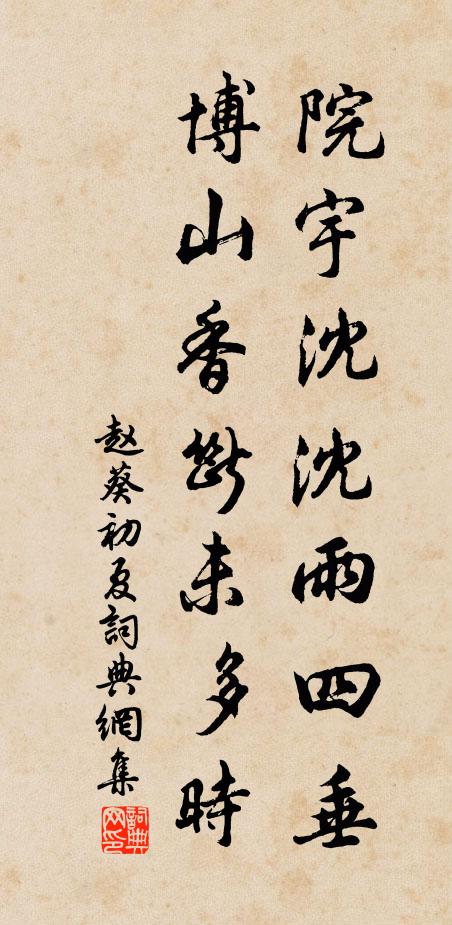 院宇沈沈雨四垂
博山香斷未多時
趙葵初夏詞典網集
詞典網印